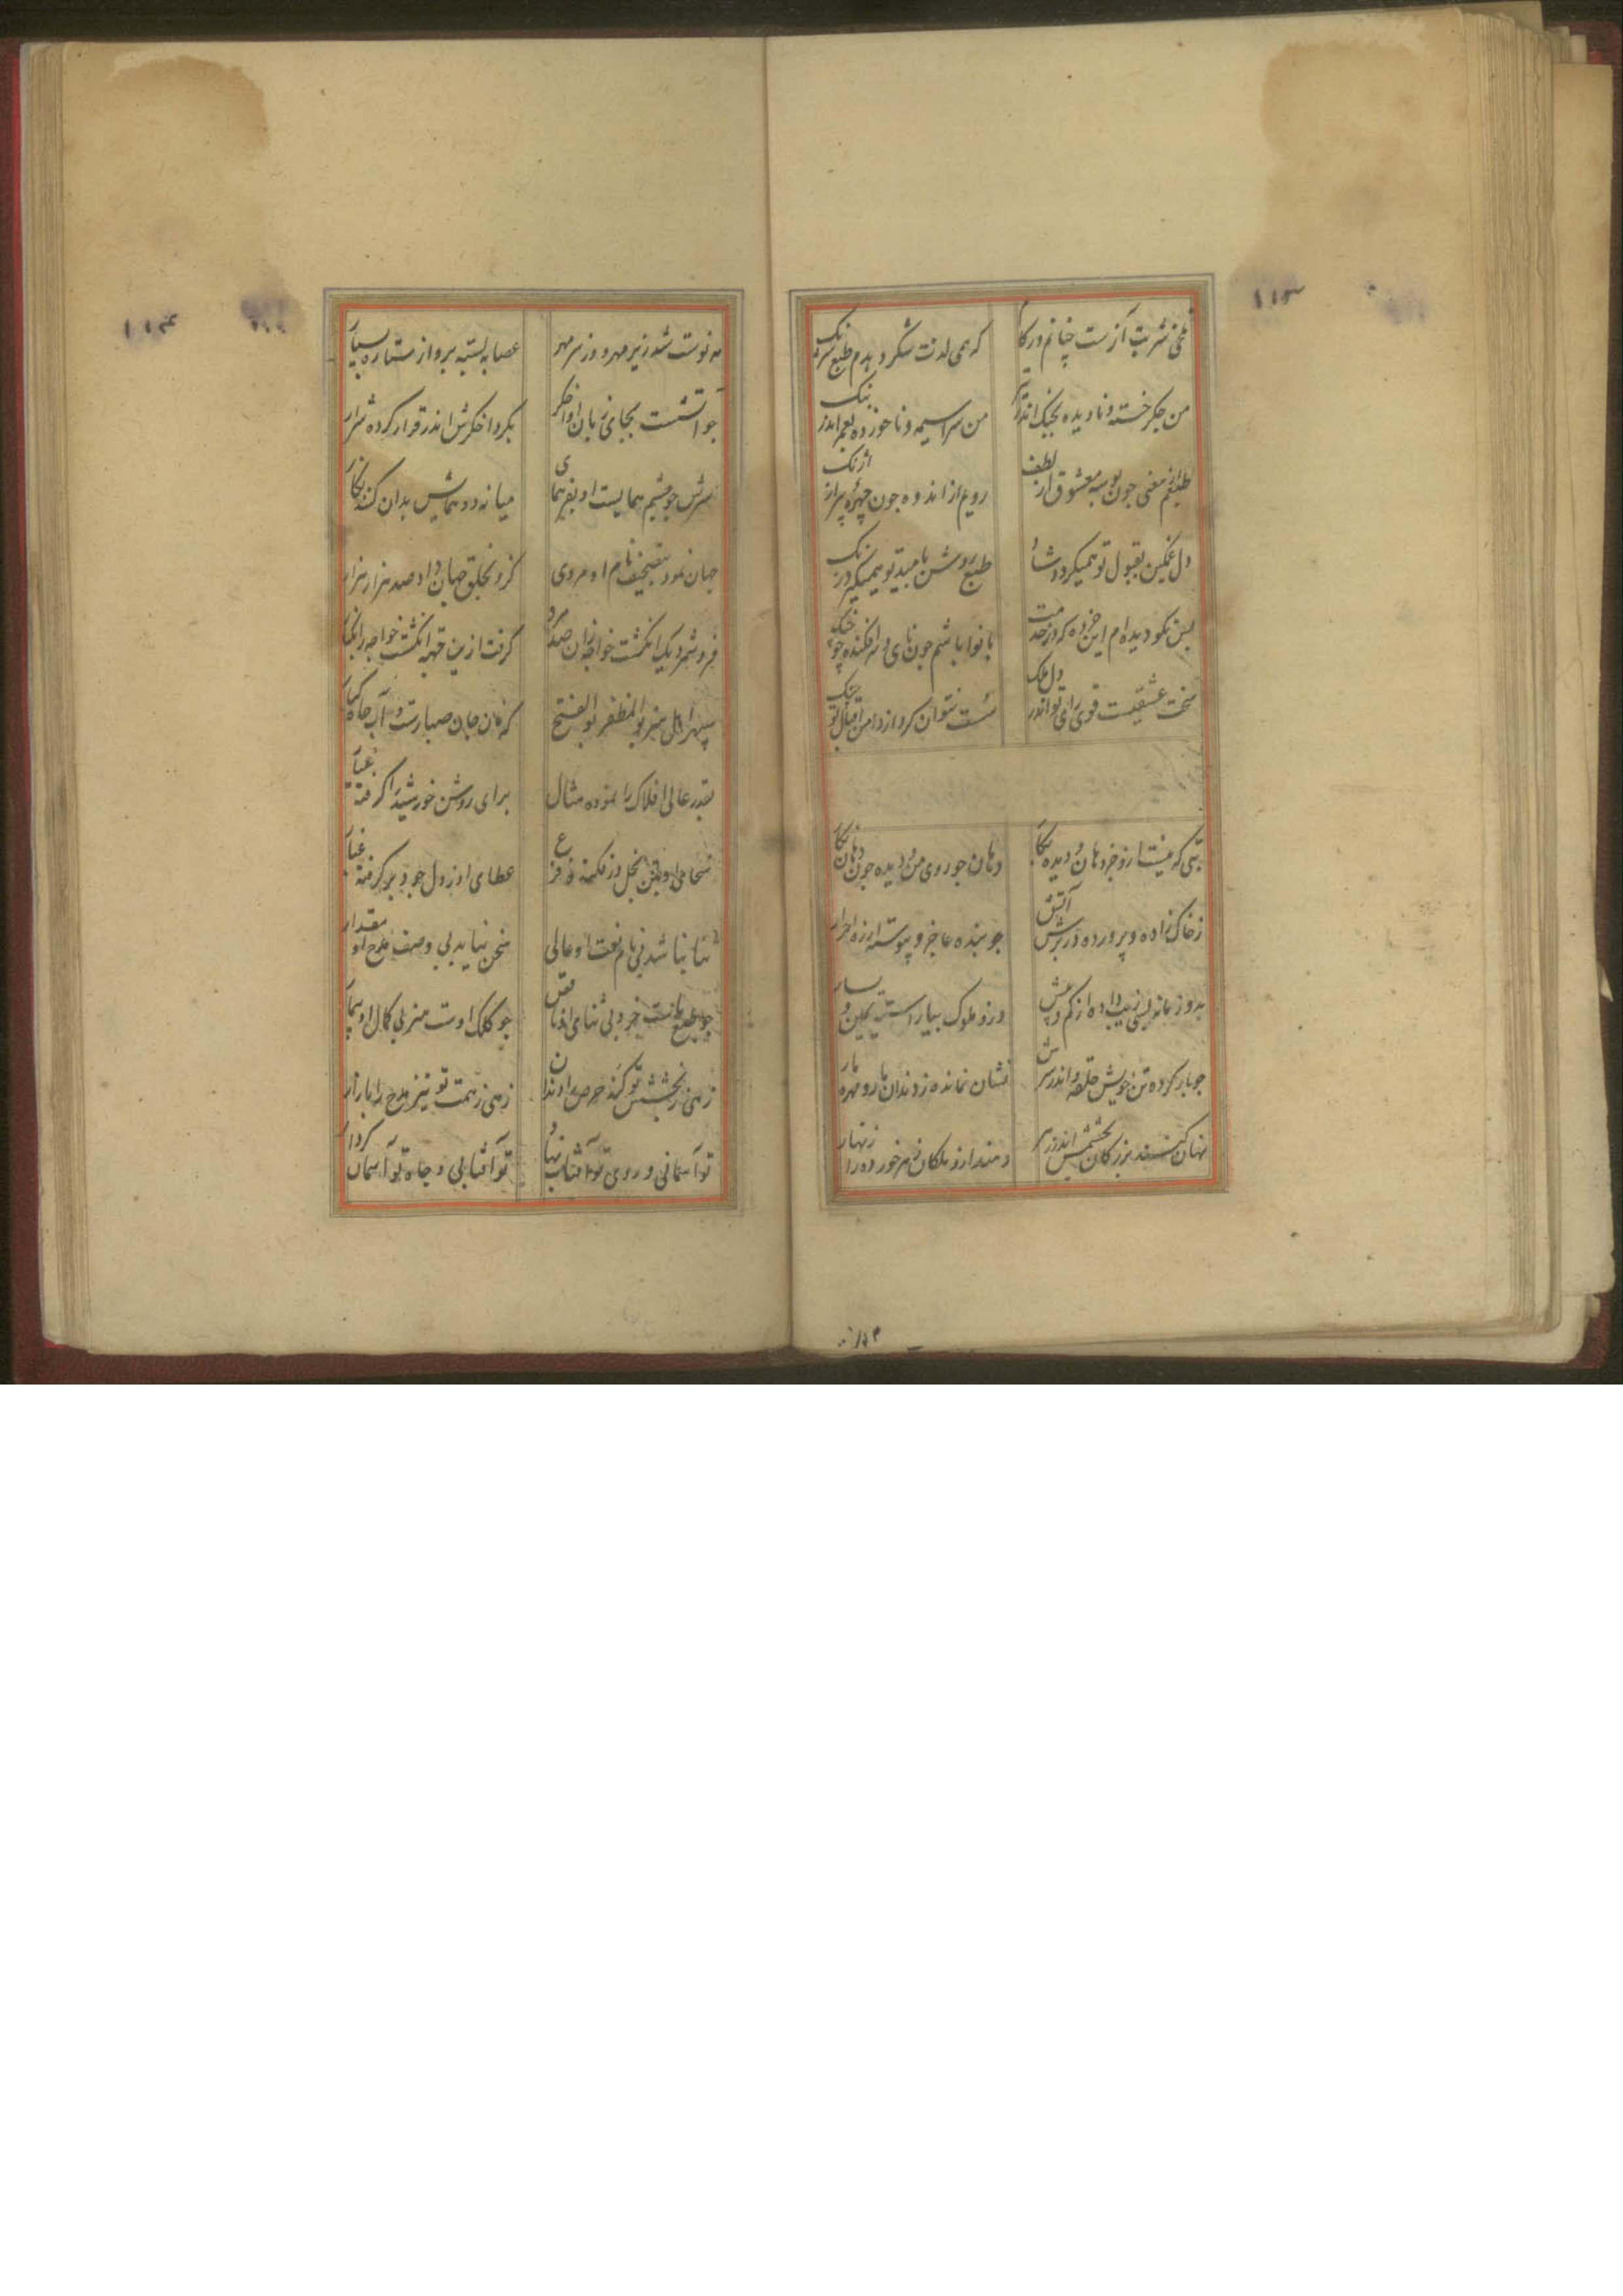 ۱۱۳
تلخی شربت آزست چنانم در کام
که همی لذت شکر دهدم طبع شرنگ
من جکر خسته و نادیده بجنک اندر تیر
من سراسیمه و نا خورده بعمر اندر بنک
طبعم معنی جون بوسه معشوق از لطف
رویم از اندوه جون جهره پر از آژنک
دل غمکین بقبول تو همیکردد شاد
طبع روشن بامید تو همیکیرد زنک
بس نکو دیده ام این خرده که در خدمت
با نوا باشم جون نای و سرافکنده چو چنک
سخت عشقیست قوی رای تو اندر دل ملک
دست نتوان کرد از دامن اقبال تو
بتی که نیست ازو جز دهان و دیده بکار
دهان جو روی من و دیده جون دهان نکار
ز خاک زاده و پرورده در برش آتش
جو بنده عاجز و پیوسته ازره احرار
بدو زمانه بسی زیب داده از کم و بیش
وزو ملوک بیاراسته یمین و یسار
جو مار کرده تن خویش حلقه و اندر سرش
نشان نمانده ز دندان مار و مهره مار
نهان کنند بزرکان بخشمش اندر زهر
دهند ازو ملکان زهر خورده را زنهار
۱۱۴
مه نوست شده زیر مهر و وز سر مهر
عصابه بسته برو از ستاره سیار
جو آتشست بجای زبان او اخکر
بکرد اخکرش اندر قرار کرده شرار
سرش جو چشم همایست او بفر همای
میانه دو همایش بدان کند
جهان نمود بتصحیف نام او مروی
کزو بخلق جهان داد صد هزار هزار
فرو شمرد یک انکشت خواجه زان صد کرد
کرفت ازین قبه انکشت خواجه را بکنار
سپهر اهل هنر بوالمظفر بوالفتح
که کان جان صبارت و آب جاه کبار
بقدر عالی افلاک را نموده مثال
برای روشن خورشید را کرفته عیار
سخن نیاید بی وصف مدح او مقدار
ثنا نباشد بی نام نعت او عالی
جو طبع ماست خرد بی ثنای او ناقص
جو کلک اوست هنر بی کمال او بیمار
زهی ز بخشش تو کند حرص را دندان
زهی ز همت تو تیز مدح را بازار
تو آسمانی و روی تو آفتاب نهاد
تو آفتابی و جاه تو آسمان کردار